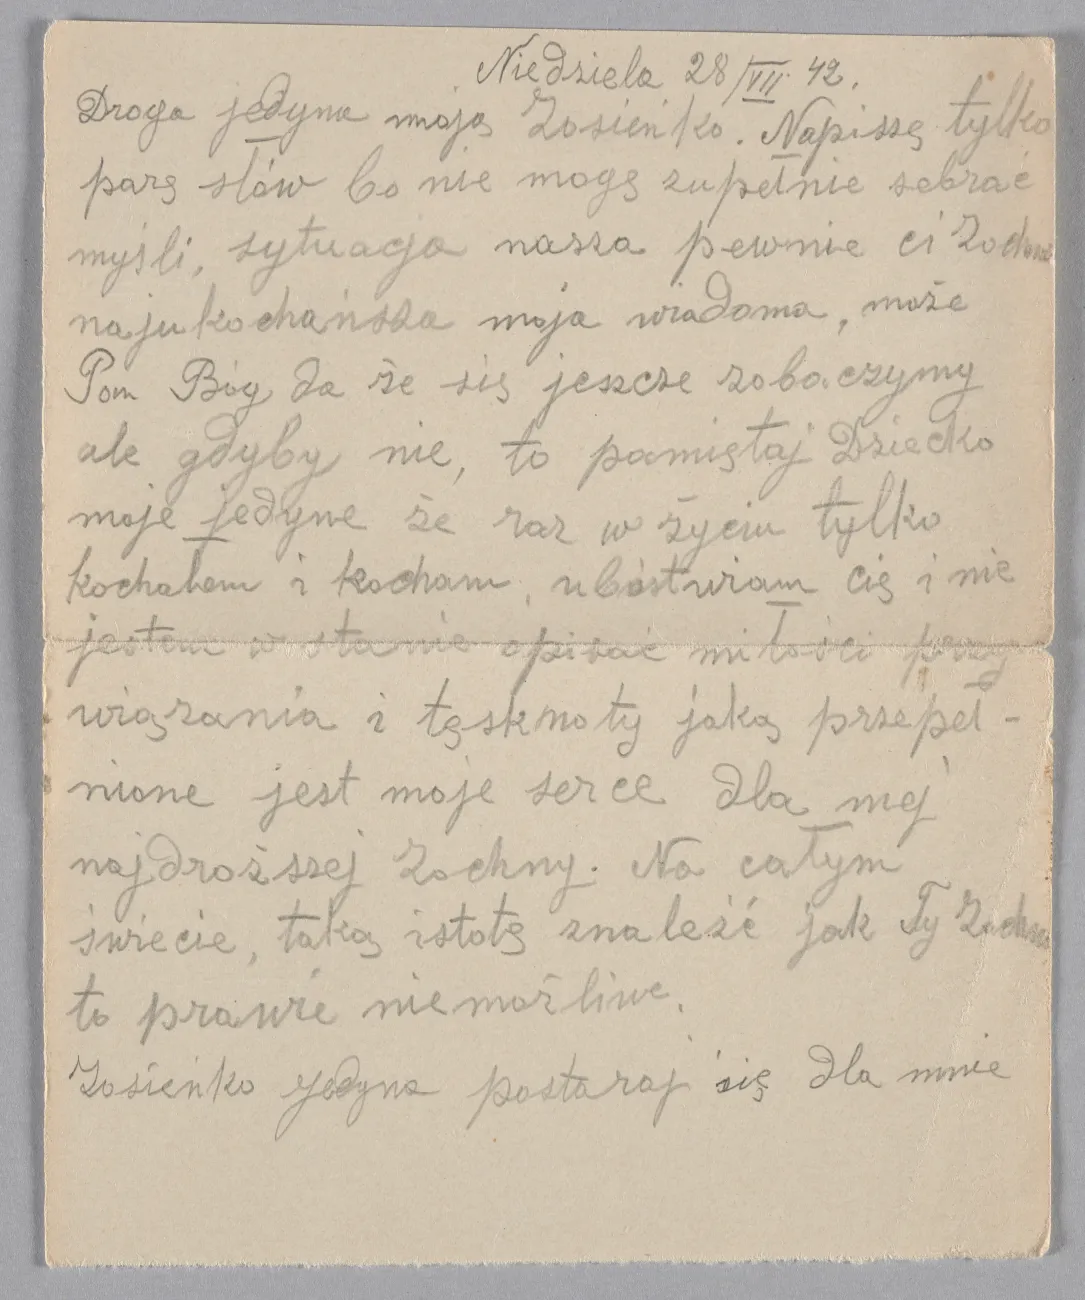 Niedziela 28/VII. 42.
Droga jedyna moją Zosieńko. Napiszę tylko
parę słów bo nie mogę zupełnie sebrać
myśli, sytuacja nasza pewnie ci Zochno
najukochańsza moja wiadoma, może
Pan Bóg da że się jeszcze zobaczymy
ale gdyby nie, to pamiętaj Dziecko
moje jedyne że raz w życiu tylko
kochałem i kocham, ubóstwiam cię i nie
jestem w stanie opisać miłości przy
wiązania i tęsknoty jaką przepeł-
nione jest moje serce dla mej
najdroższej Zochny. Na całym
świecie, taką istotę znaleźć jak Ty Zochno
to prawie niemożliwe.
Zosieńko jedyna postaraj się dla mnie